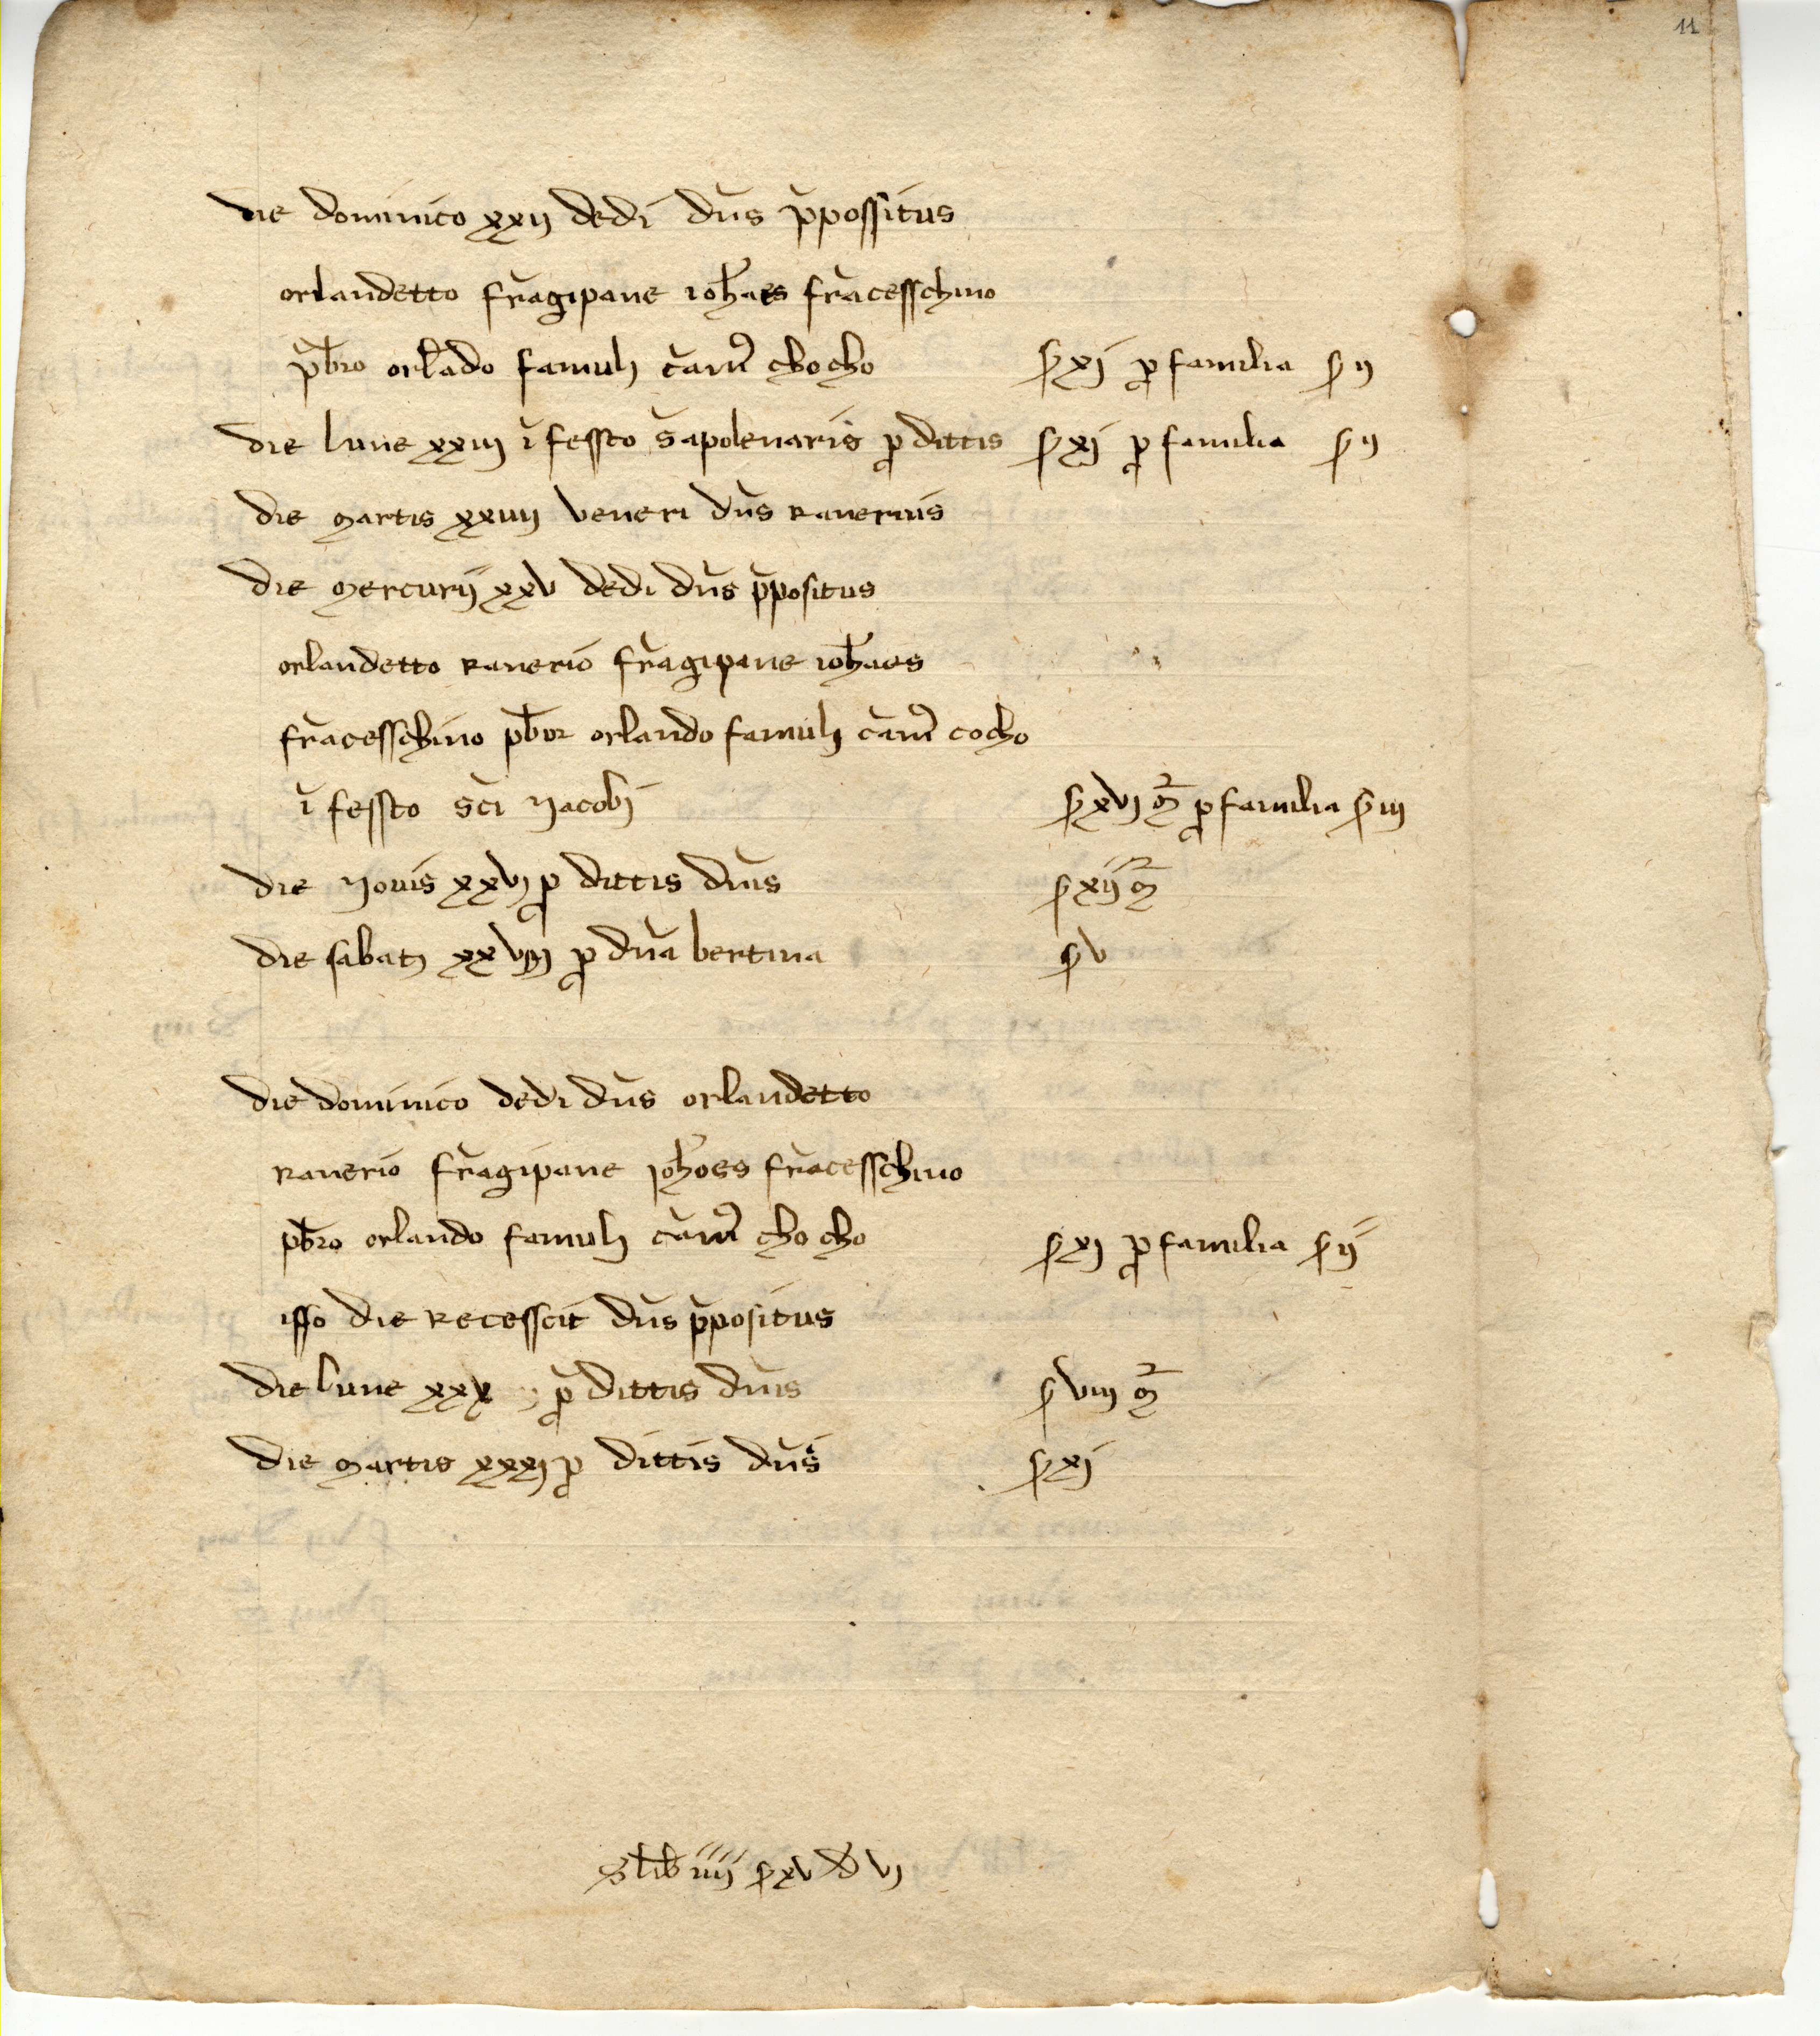 11
die dominico xxij dedi dn̄s p̄possitus
orlandetto frāgipane ioh̄aes frācesschino
p̄b̄ro orl̄ado famulj cām̄ chocho ꝭ xj ꝓ familia ꝭ ij
die lune xxiij ī fessto s̄ apolenaris ꝓ dittis ꝭ xj ꝓ familia ꝭ ij
die martis xxiiij veneri dn̄s ranerius
die mercurij xxv dedi dn̄s p̄positus
orlandetto ranerio frāgipane ioh̄aes
frācesschino pb̄or orlando famulj cām̄ cocho
ī fessto sc̄i yacobi ꝭ xvj m̄ ꝓ familia ꝭ iij
die yovis xxvj ꝓ dittis dn̄is ꝭ xij m̄
die sabatj xxviij ꝓ dn̄a bertina ꝭ v
die dominico dedi dn̄s orlandetto
ranerio frāgipane joh̄oes frācesschino
pb̄ro orlando famulj cām̄ chocho ꝭ xj ꝓ familia ꝭ ij
isso die recesscit dn̄s p̄positus
die lune xxx ꝓ dittis dn̄is ꝭ viij m̄
die martis xxxj ꝓ dittis dn̄is ꝭ xj
S lib̄ iiij ꝭ xv d vj